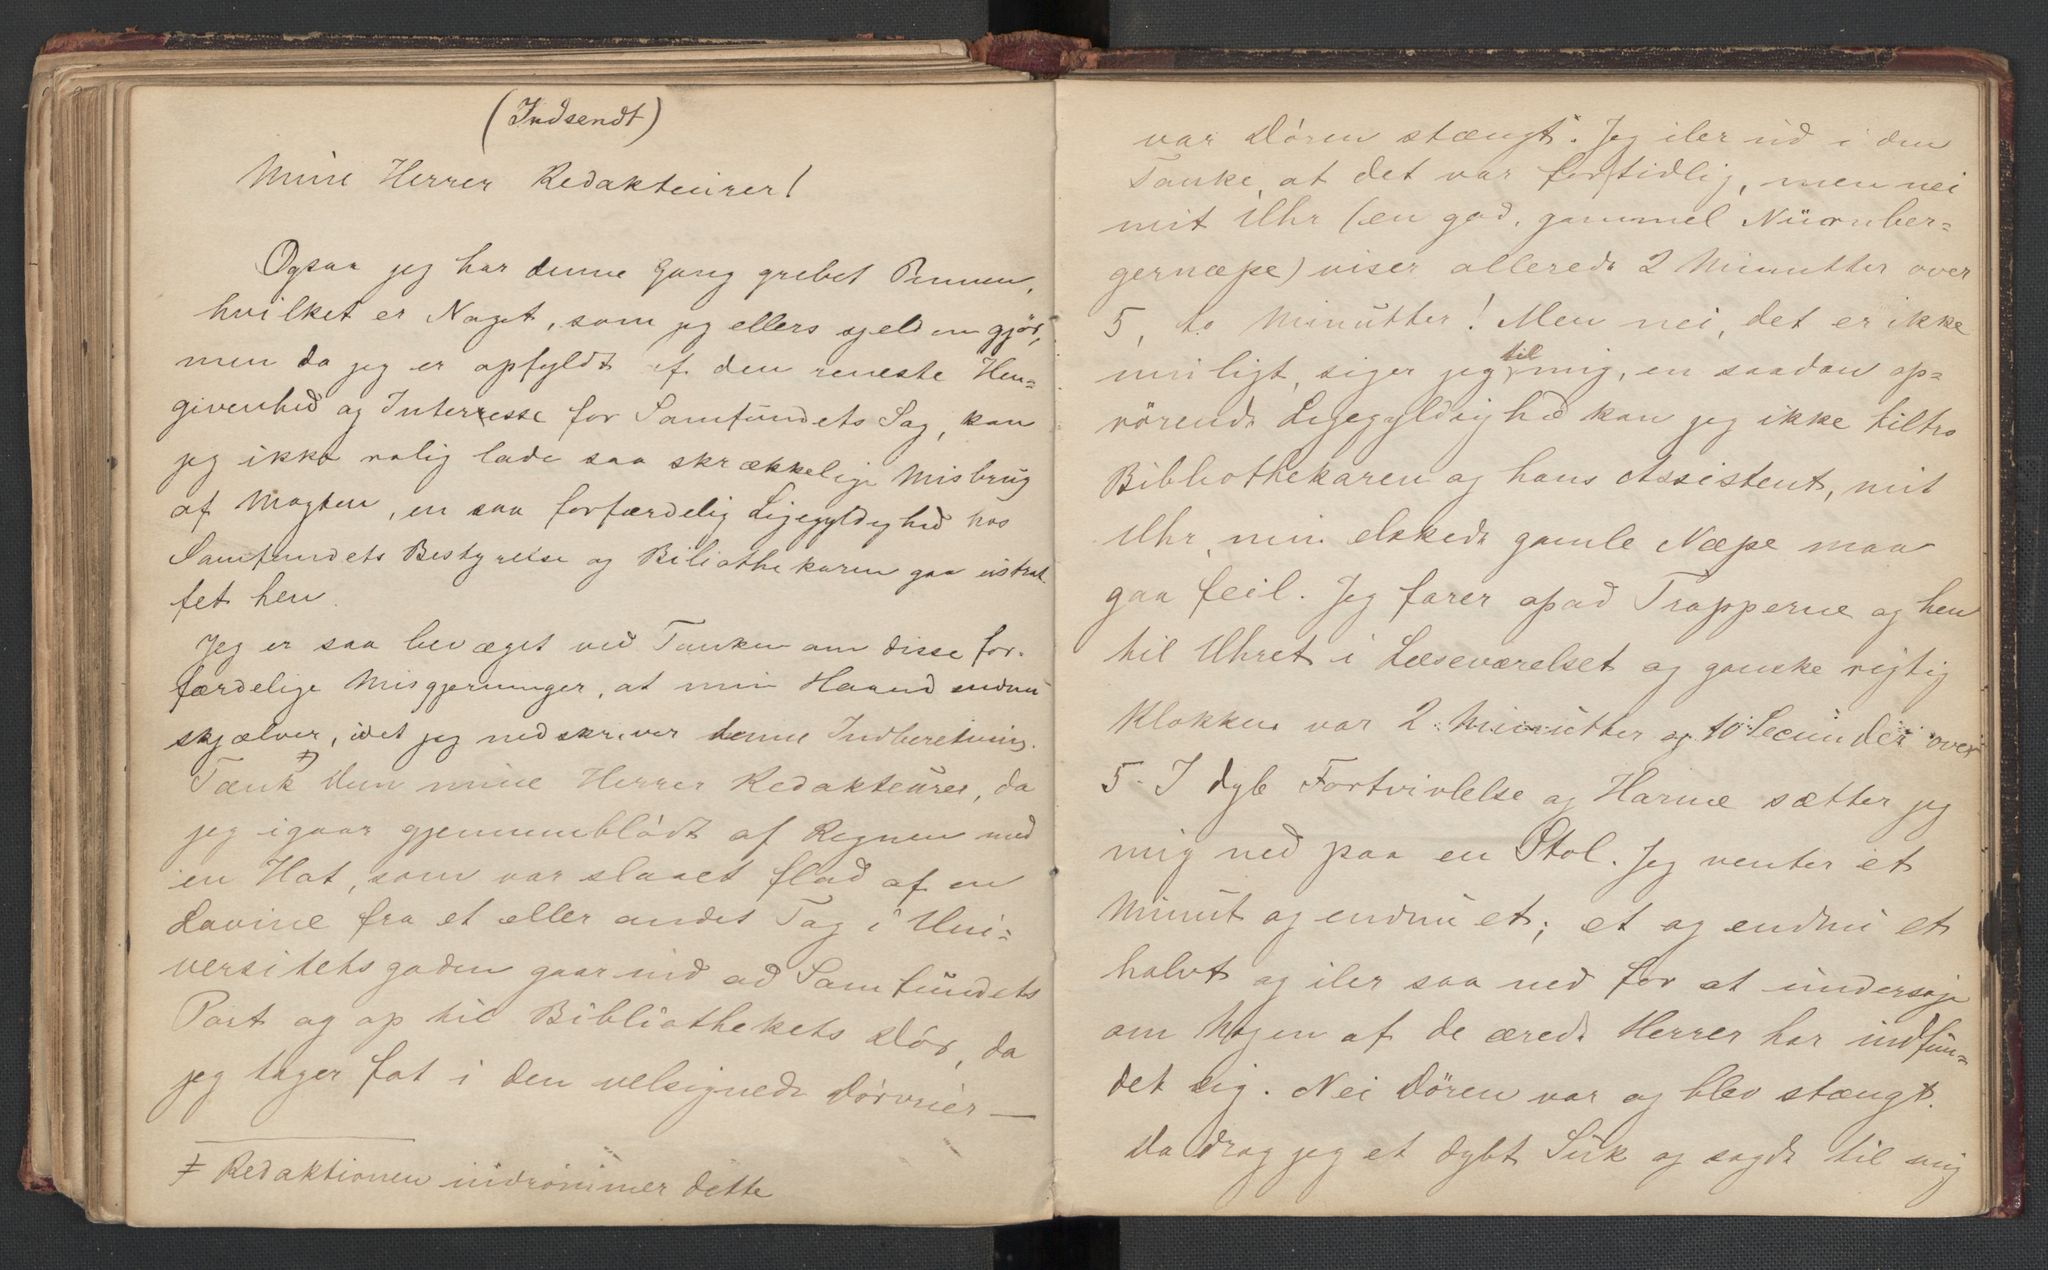 (Indsendt)
Mine Herrer Redakteurer!
Ogsaa jeg har denne Gang grebet Pennen,
hvilket er Noget, som jeg ellers sjelden gjør,
men da jeg er opfyldt af den reneste Hen-
givenhed og Interresse for Samfundets Sag, kan
jeg ikke rolig lade saa skrækkelige Misbrug
af Magten, en saa forfærdelig Ligegyldighed hos
Samfundets Bestyrelse og Biliothekaren gaa ustraf
fet hen.
Jeg er saa bevæget ved Tanken om disse for-
færdelige Misgjerninger, at min Haand endnu
skjælver, idet jeg nedskriver denne Indberetning. ≠)
Tænk Dem mine Herrer Redakteurer, da
jeg igaar gjennemblödt af Regnen med
en Hat, som var slaaet flad af en
Lavine fra et eller andet Tag i Uni=
versitetsgaden gaar ind ad Samfundets
Port og op til Bibliothekets Dör, da
jeg tager fat i den velsignede Dörvrier —
≠ Redaktionen indrömmer dette
var Dören stængt. Jeg iler ud i den
Tanke, at det var fortidlig, men nei
mit Uhr (en god, gammel Nürnber=
gernæpe) viser allerede 2 Minutter over
5, to Minutter! Men nei, det er ikke
muligt, siger jeg til mig, en saadan op=
rörende Ligegyldighed kan jeg ikke tiltro
Bibliothekaren og hans Assistent, mit
Uhr, min elskede gamle Næpe maa
gaa feil. Jeg farer opad Trapperne og hen
til Uhret i Læseværelset og ganske rigtig
Klokken var 2 Minutter og 10 Secunder over
5. I dyb Fortvivlelse og Harme sætter jeg
mig ned paa en Stol. Jeg venter et
Minut og endnu et; et og endnu et
halvt og iler saa ned for at undersøge
om Nogen af de ærede Herrer har indfun=
det sig. Nei Dören var og blev stængt.
Da drog jeg et dybt Suk og sagde til mig